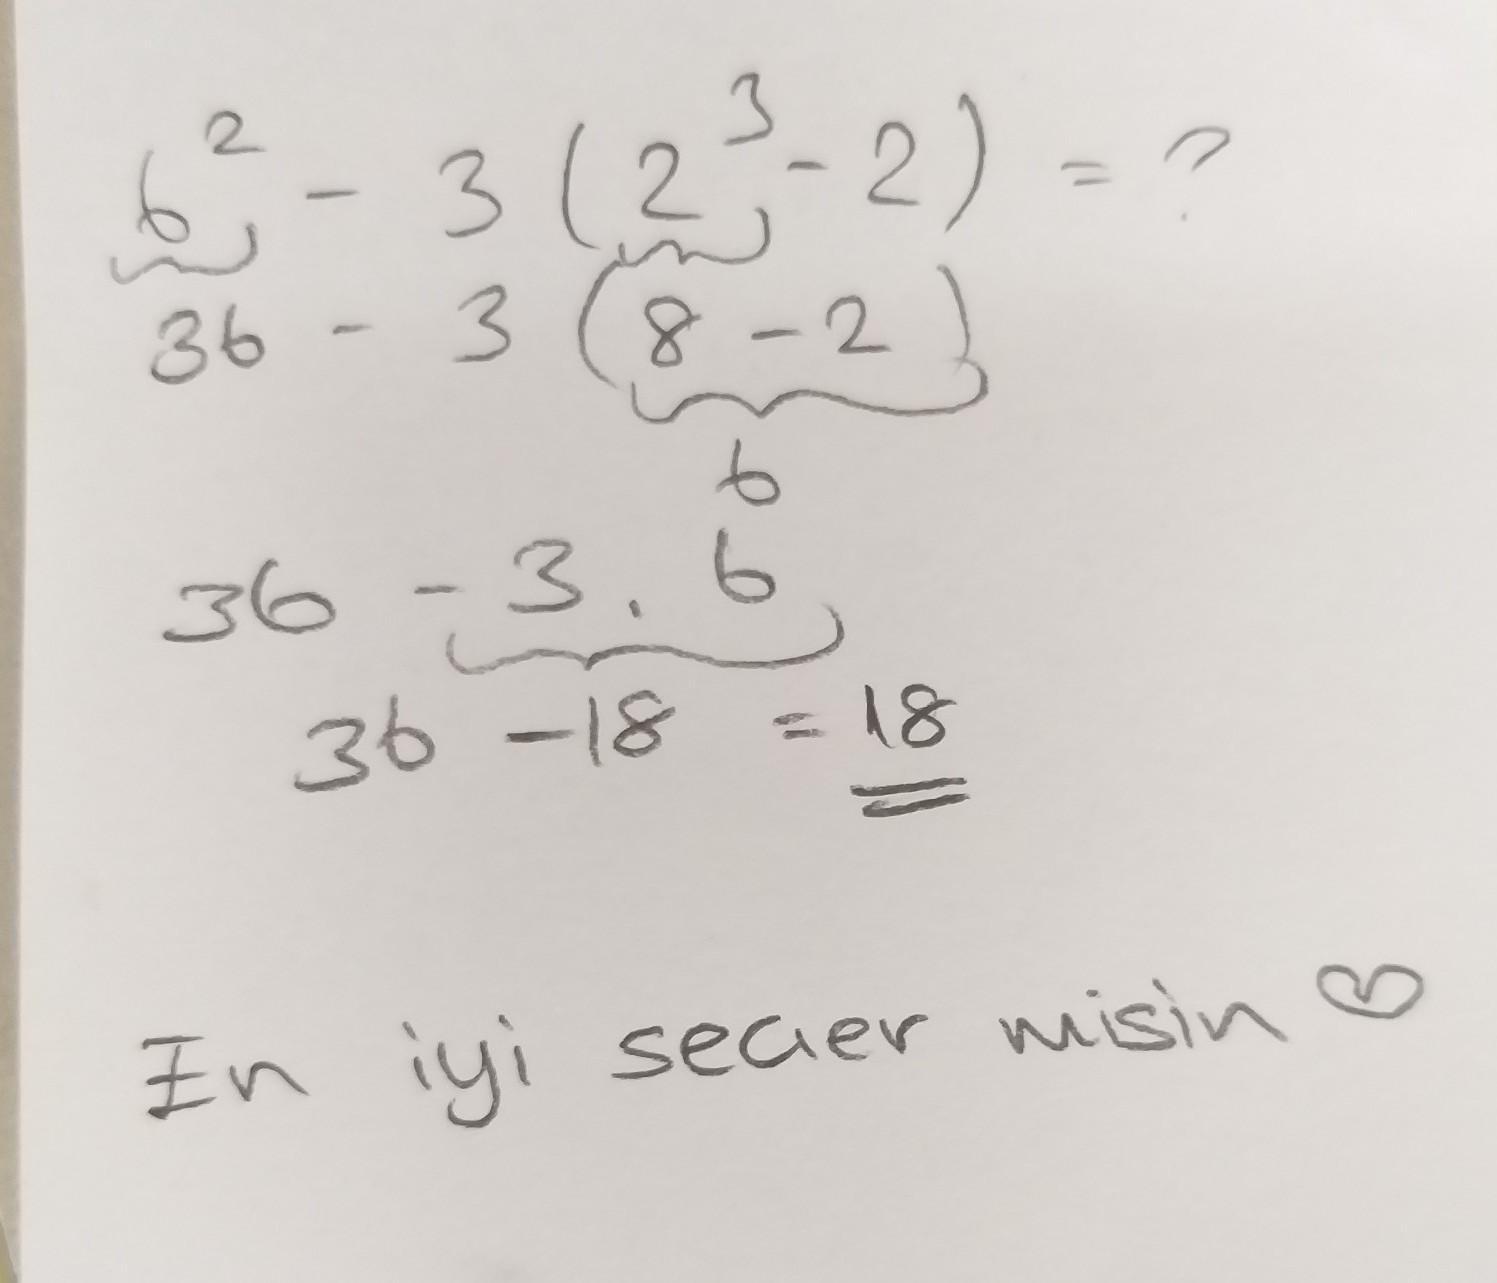 6² - 3 (2³ - 2) = ?
36 - 3 (8 - 2)
6
36 - 3 . 6
36 - 18 = 18
En iyi secer misin ♡